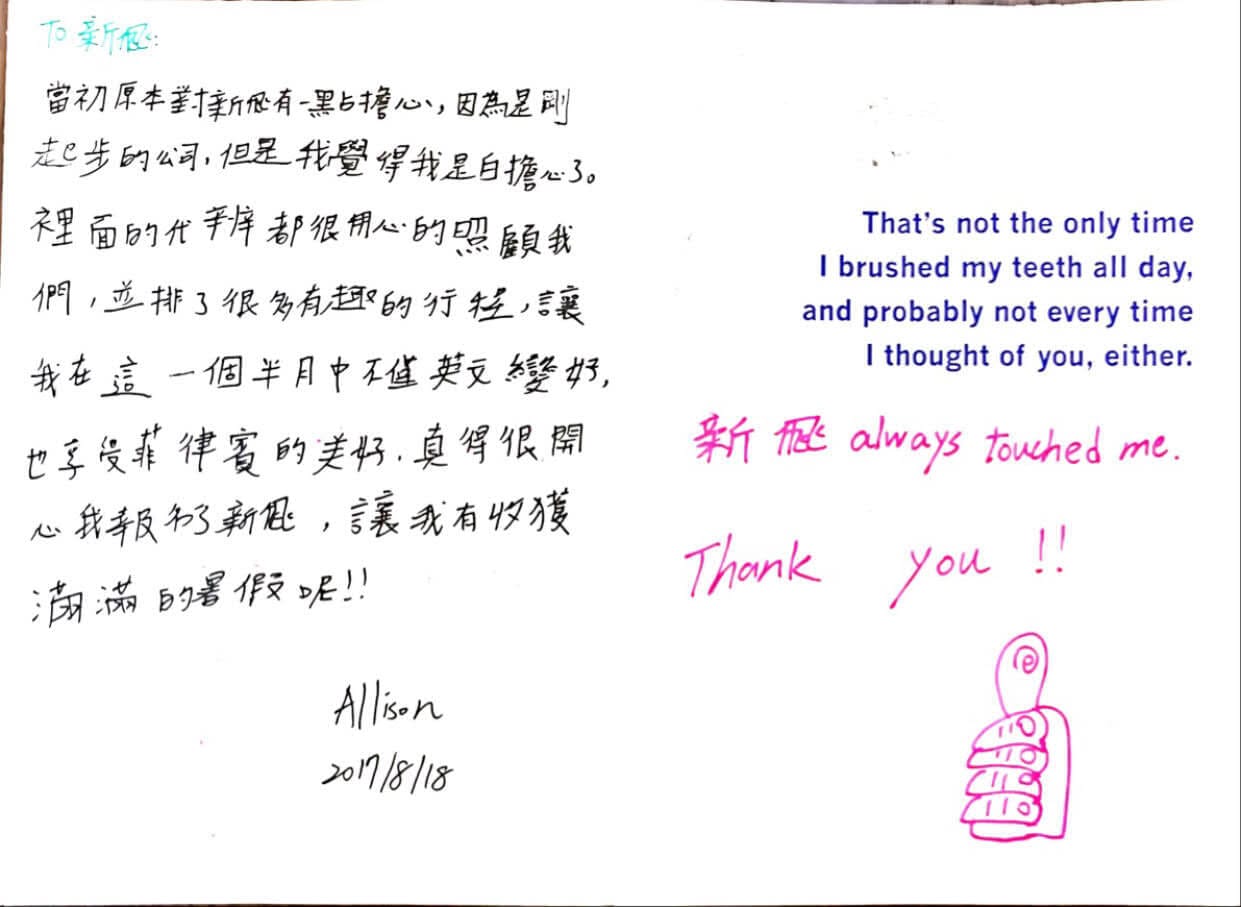 To 新飛:
當初原本對新飛有一點擔心,因為是剛
起步的公司,但是我覺得我是白擔心了。
裡面的代辦都很用心的照顧我
們,並排了很多有趣的行程,讓
我在這一個半月中不僅英文變好,
也享受菲律賓的美好.真得很開
心我報名了新飛,讓我有收獲
滿滿的暑假呢!!
Allison
2017/8/18
That's not the only time
I brushed my teeth all day,
and probably not every time
I thought of you, either.
新飛 always touched me.
Thank you !!